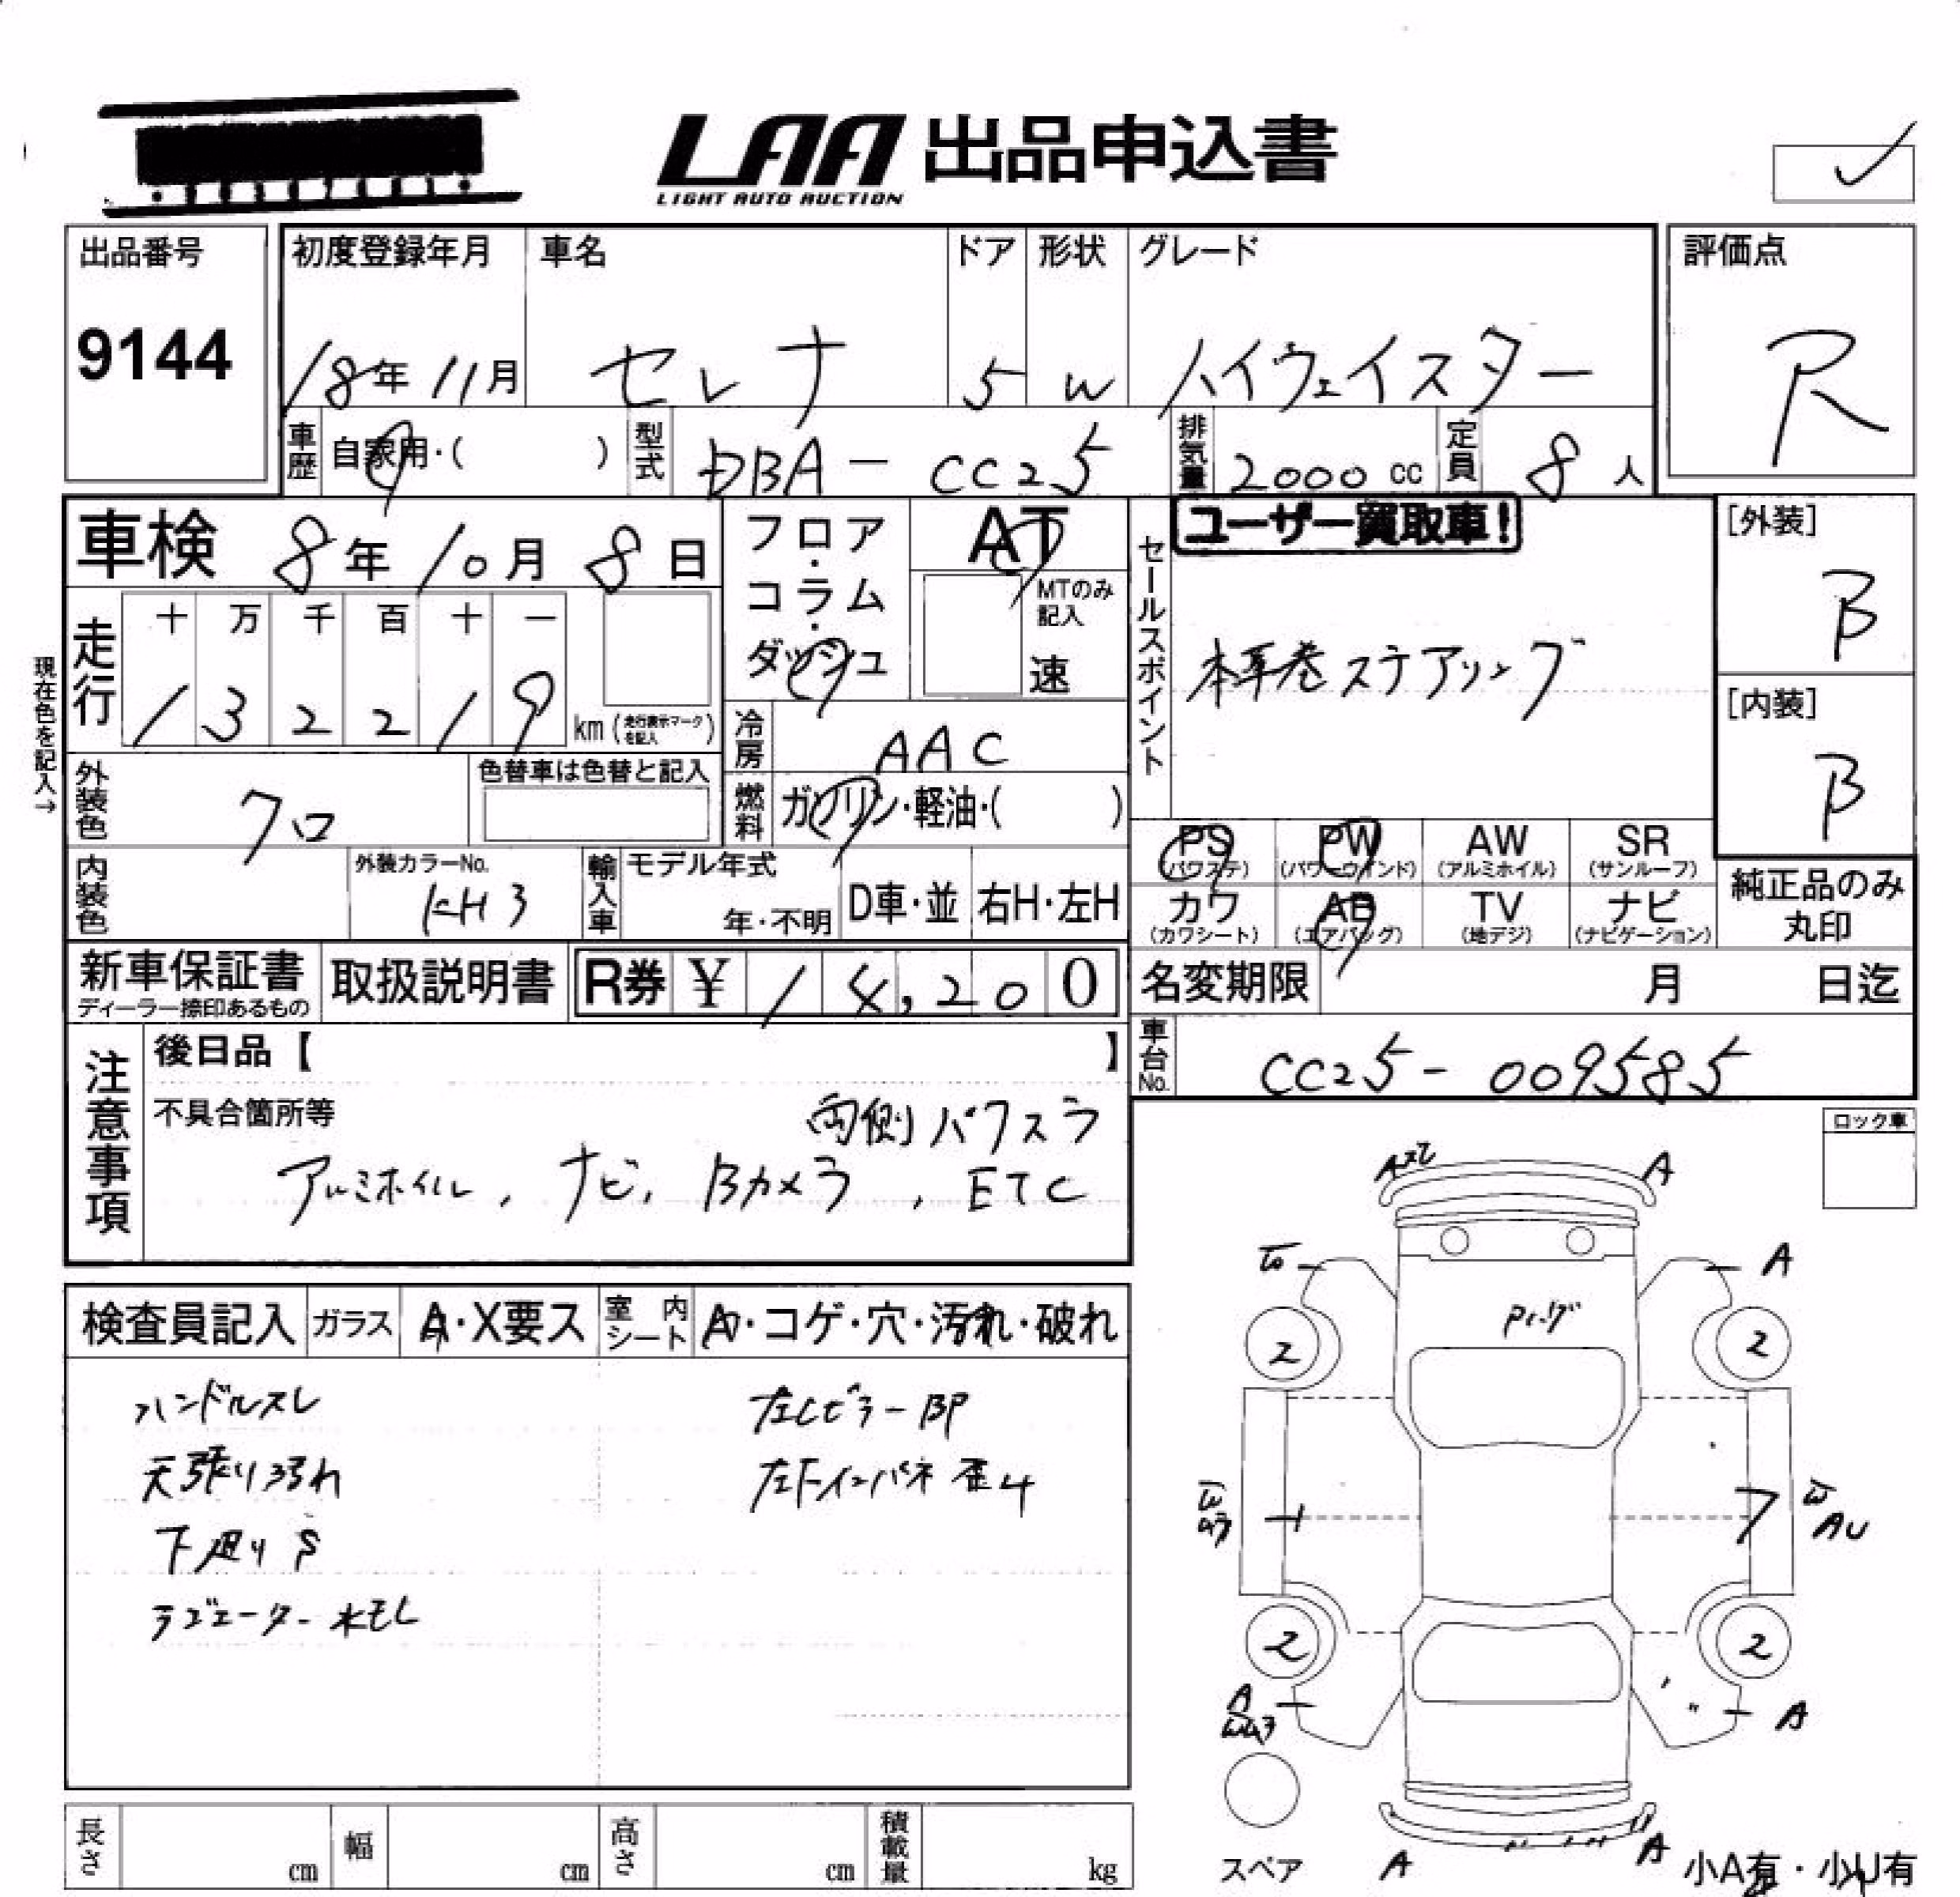 LAA 出品申込書
LIGHT AUTO AUCTION
出品番号
9144
初度登録年月
18年 11月
車名
セレナ
ドア
5
形状
W
グレード
ハイウェイスター
評価点
R
車歴 自家用・( )
型式 DBA-CC25
排気量 2000 cc
定員 8 人
車検 8年 10月 8日
フロア・コラム・ダッシュ
AT
MTのみ記入
速
セールスポイント
ユーザー買取車!
本革巻ステアリング
[外装]
B
[内装]
B
現在色を記入→
走行
十 万 千 百 十 一
1 3 2 2 1 9
km (走行表示マークを記入)
冷房 AAC
外装色 クロ
色替車は色替と記入
燃料 ガソリン・軽油・( )
内装色
外装カラーNo.
KH3
輸入車
モデル年式
年・不明
D車・並
右H・左H
PS (パワステ)
PW (パワーウインド)
AW (アルミホイル)
SR (サンルーフ)
カワ (カワシート)
AB (エアバッグ)
TV (地デジ)
ナビ (ナビゲーション)
純正品のみ丸印
新車保証書
ディーラー捺印あるもの
取扱説明書
R券 ¥ 14,200
名変期限 月 日迄
車台No. CC25-009585
注意事項
後日品【 】
不具合箇所等
両側パワスラ
アルミホイル, ナビ, Bカメラ, ETC
ロック車
検査員記入
ガラス A・X要ス
室内シート A・コゲ・穴・汚れ・破れ
ハンドルスレ
天張り汚れ
下廻りS
ラジエーター水モレ
左Cピラー BP
A
A
A
2
2
AU
2
2
A
A
A
A
スペア
小A有・小U有
長さ cm
幅 cm
高さ cm
積載量 kg